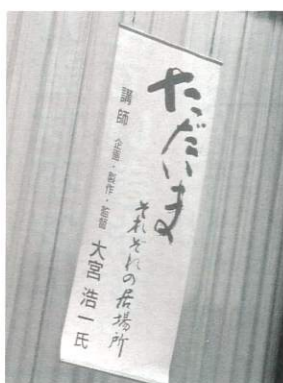 ただいま
それぞれの居場所
講師 企画・製作・監督 大宮浩一氏